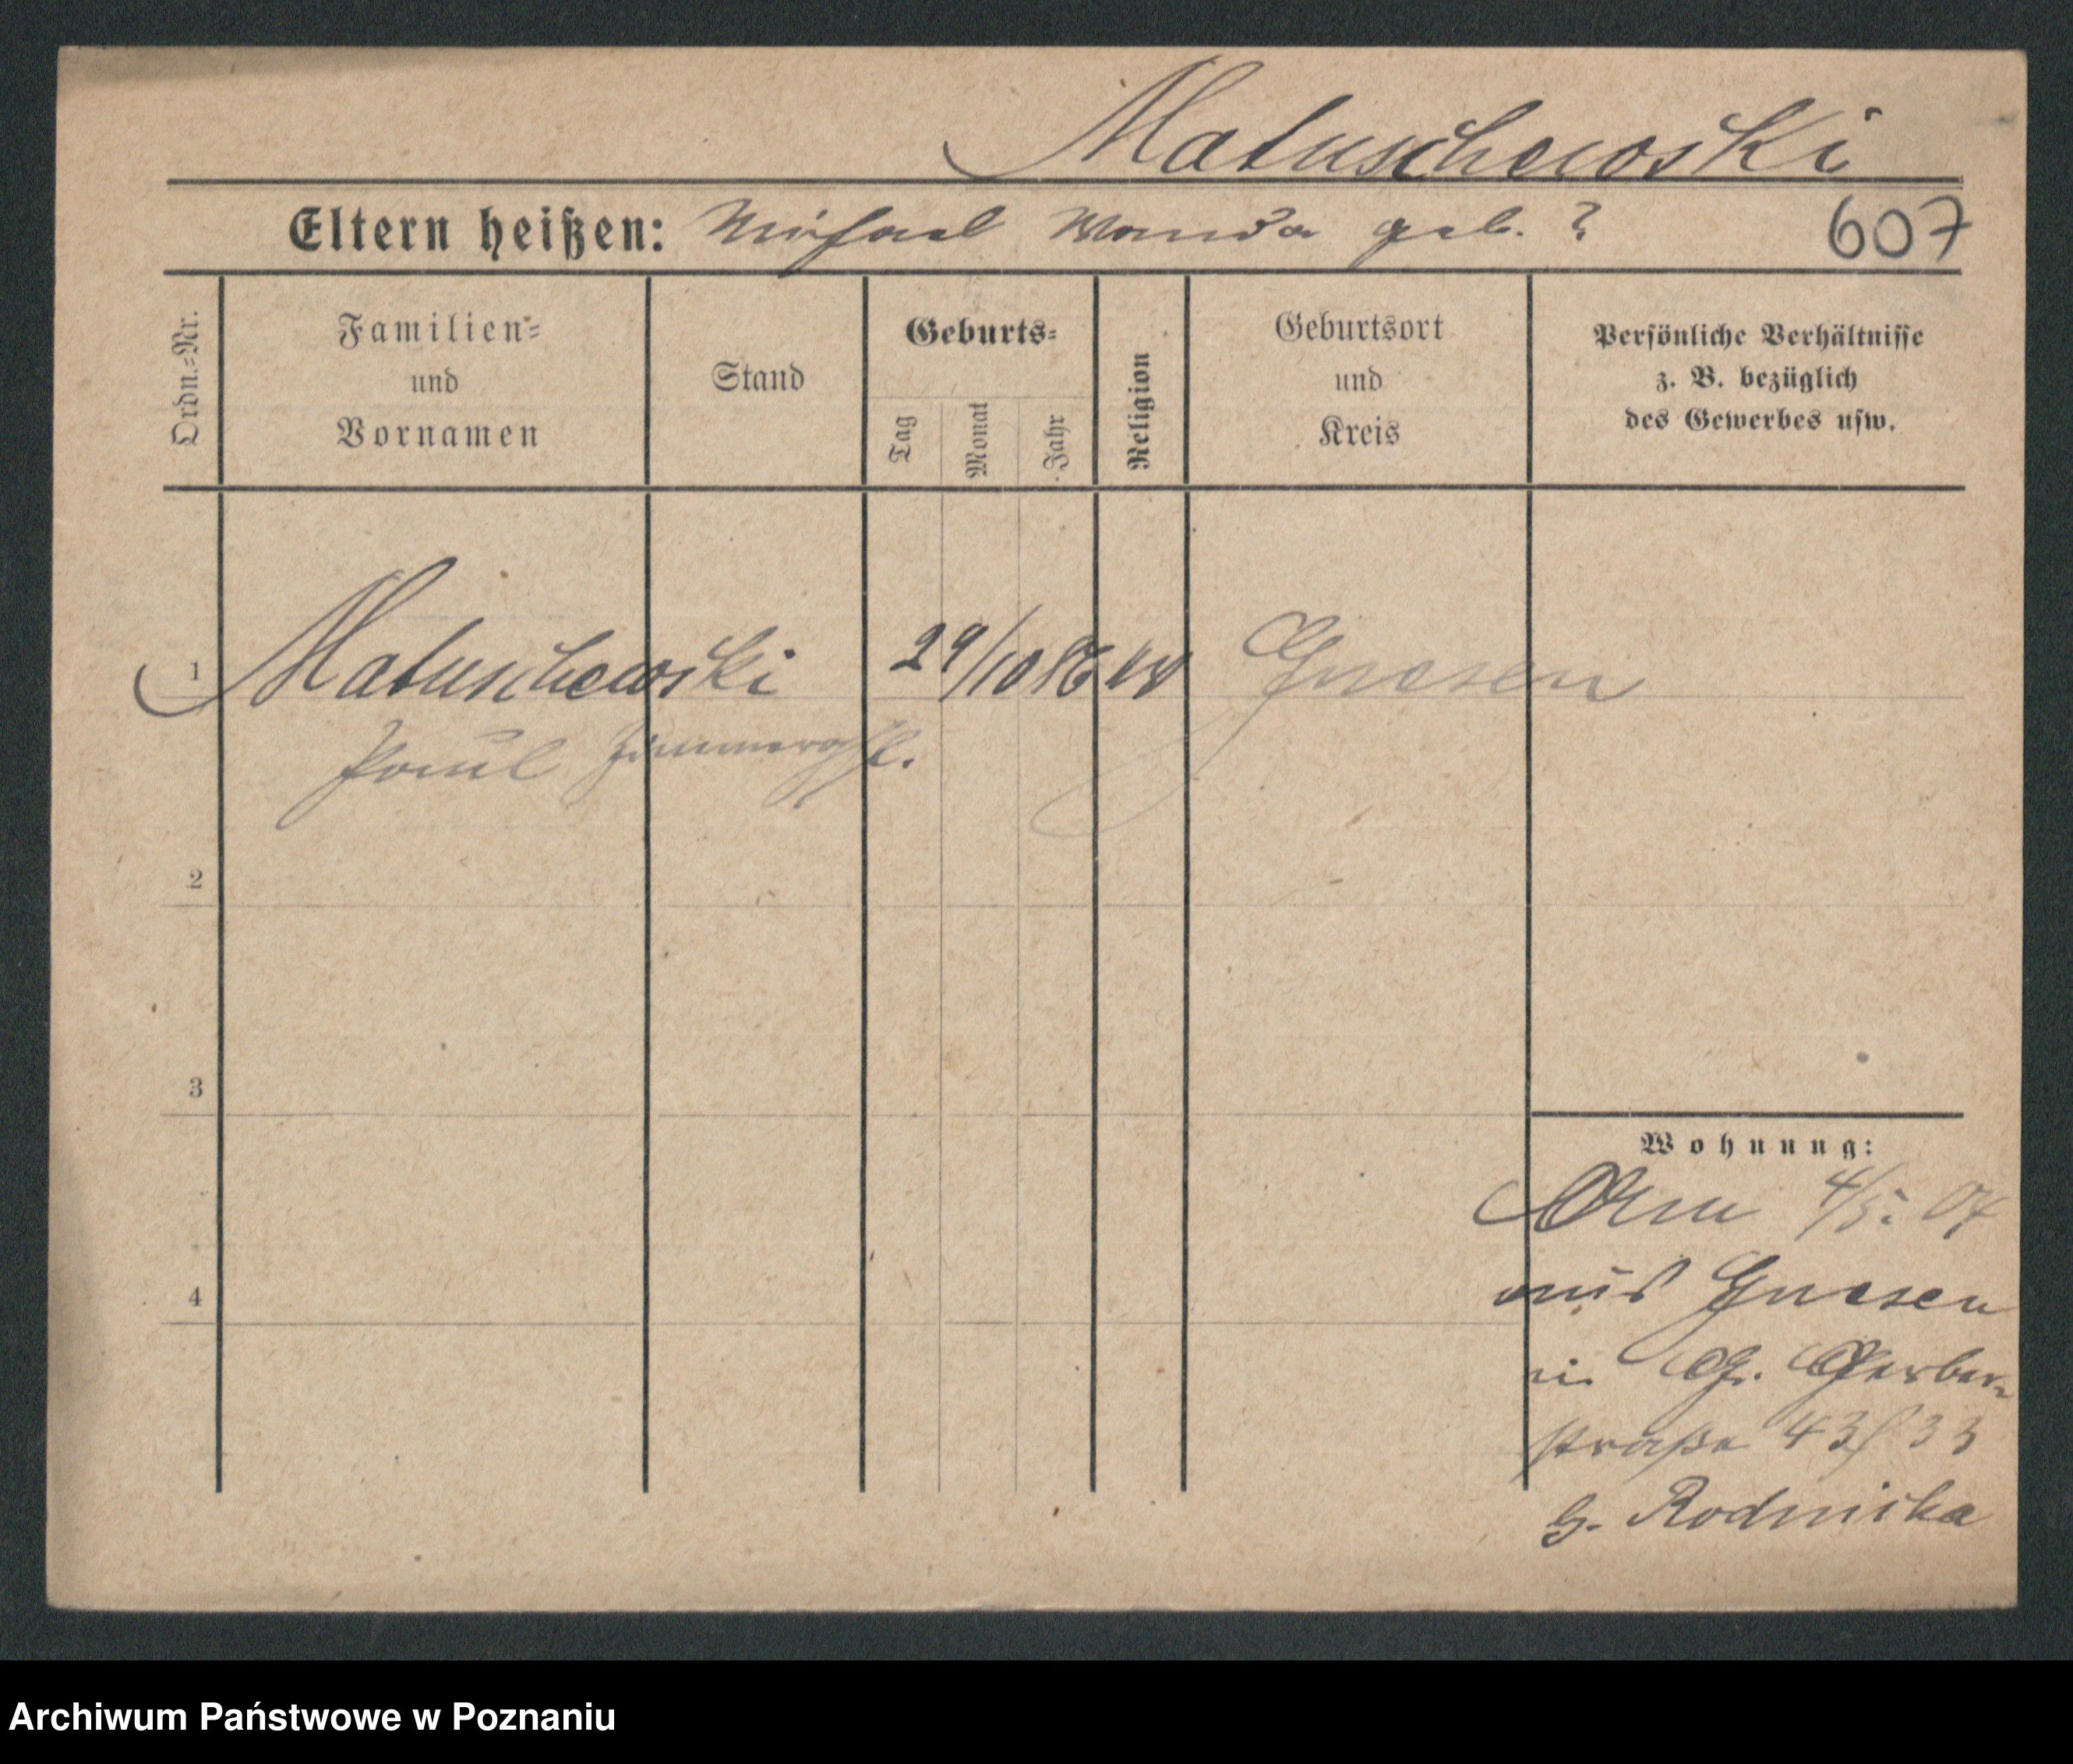 Matuschewski
Eltern heißen: Michael Wanda geb. ?
607
Ordn.=Nr.
Familien=
und
Vornamen
Stand
Geburts=
Tag
Monat
Jahr
Religion
Geburtsort
und
Kreis
Persönliche Verhältnisse
z. B. bezüglich
des Gewerbes usw.
1 Matuschewski 29/10 86 Gnesen
Paul Zimmergsl.
2
3
4
Wohnung:
4/5. 07
aus Gnesen
in Gr. Gerber=
straße 43/33
b. Rodnicka
Archiwum Państwowe w Poznaniu